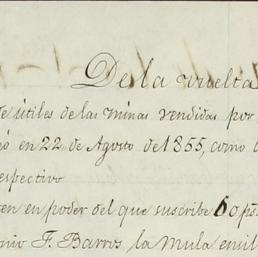 De la vuelta
e útiles de las minas vendidas por
ió en 22 de Agosto de 1855, como
espectivo
en en poder del que suscribe 60 ps.
nio F. Barros la Mula